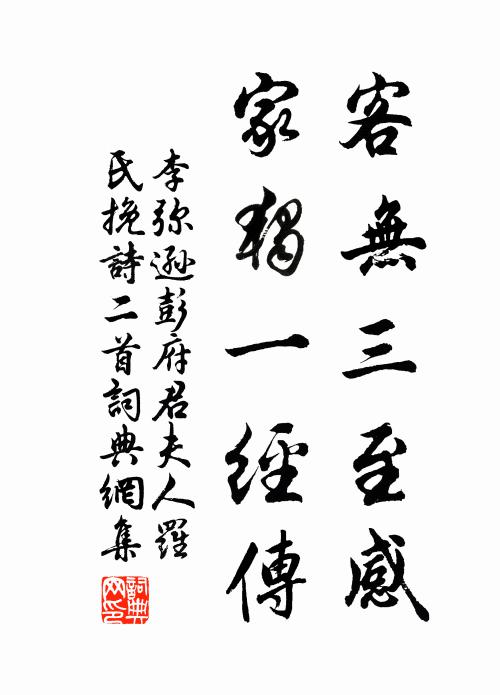 客無三至感
家獨一經傳
李弥遜彭府君夫人羅
民挽詩二首詞典網集
詞典
网印